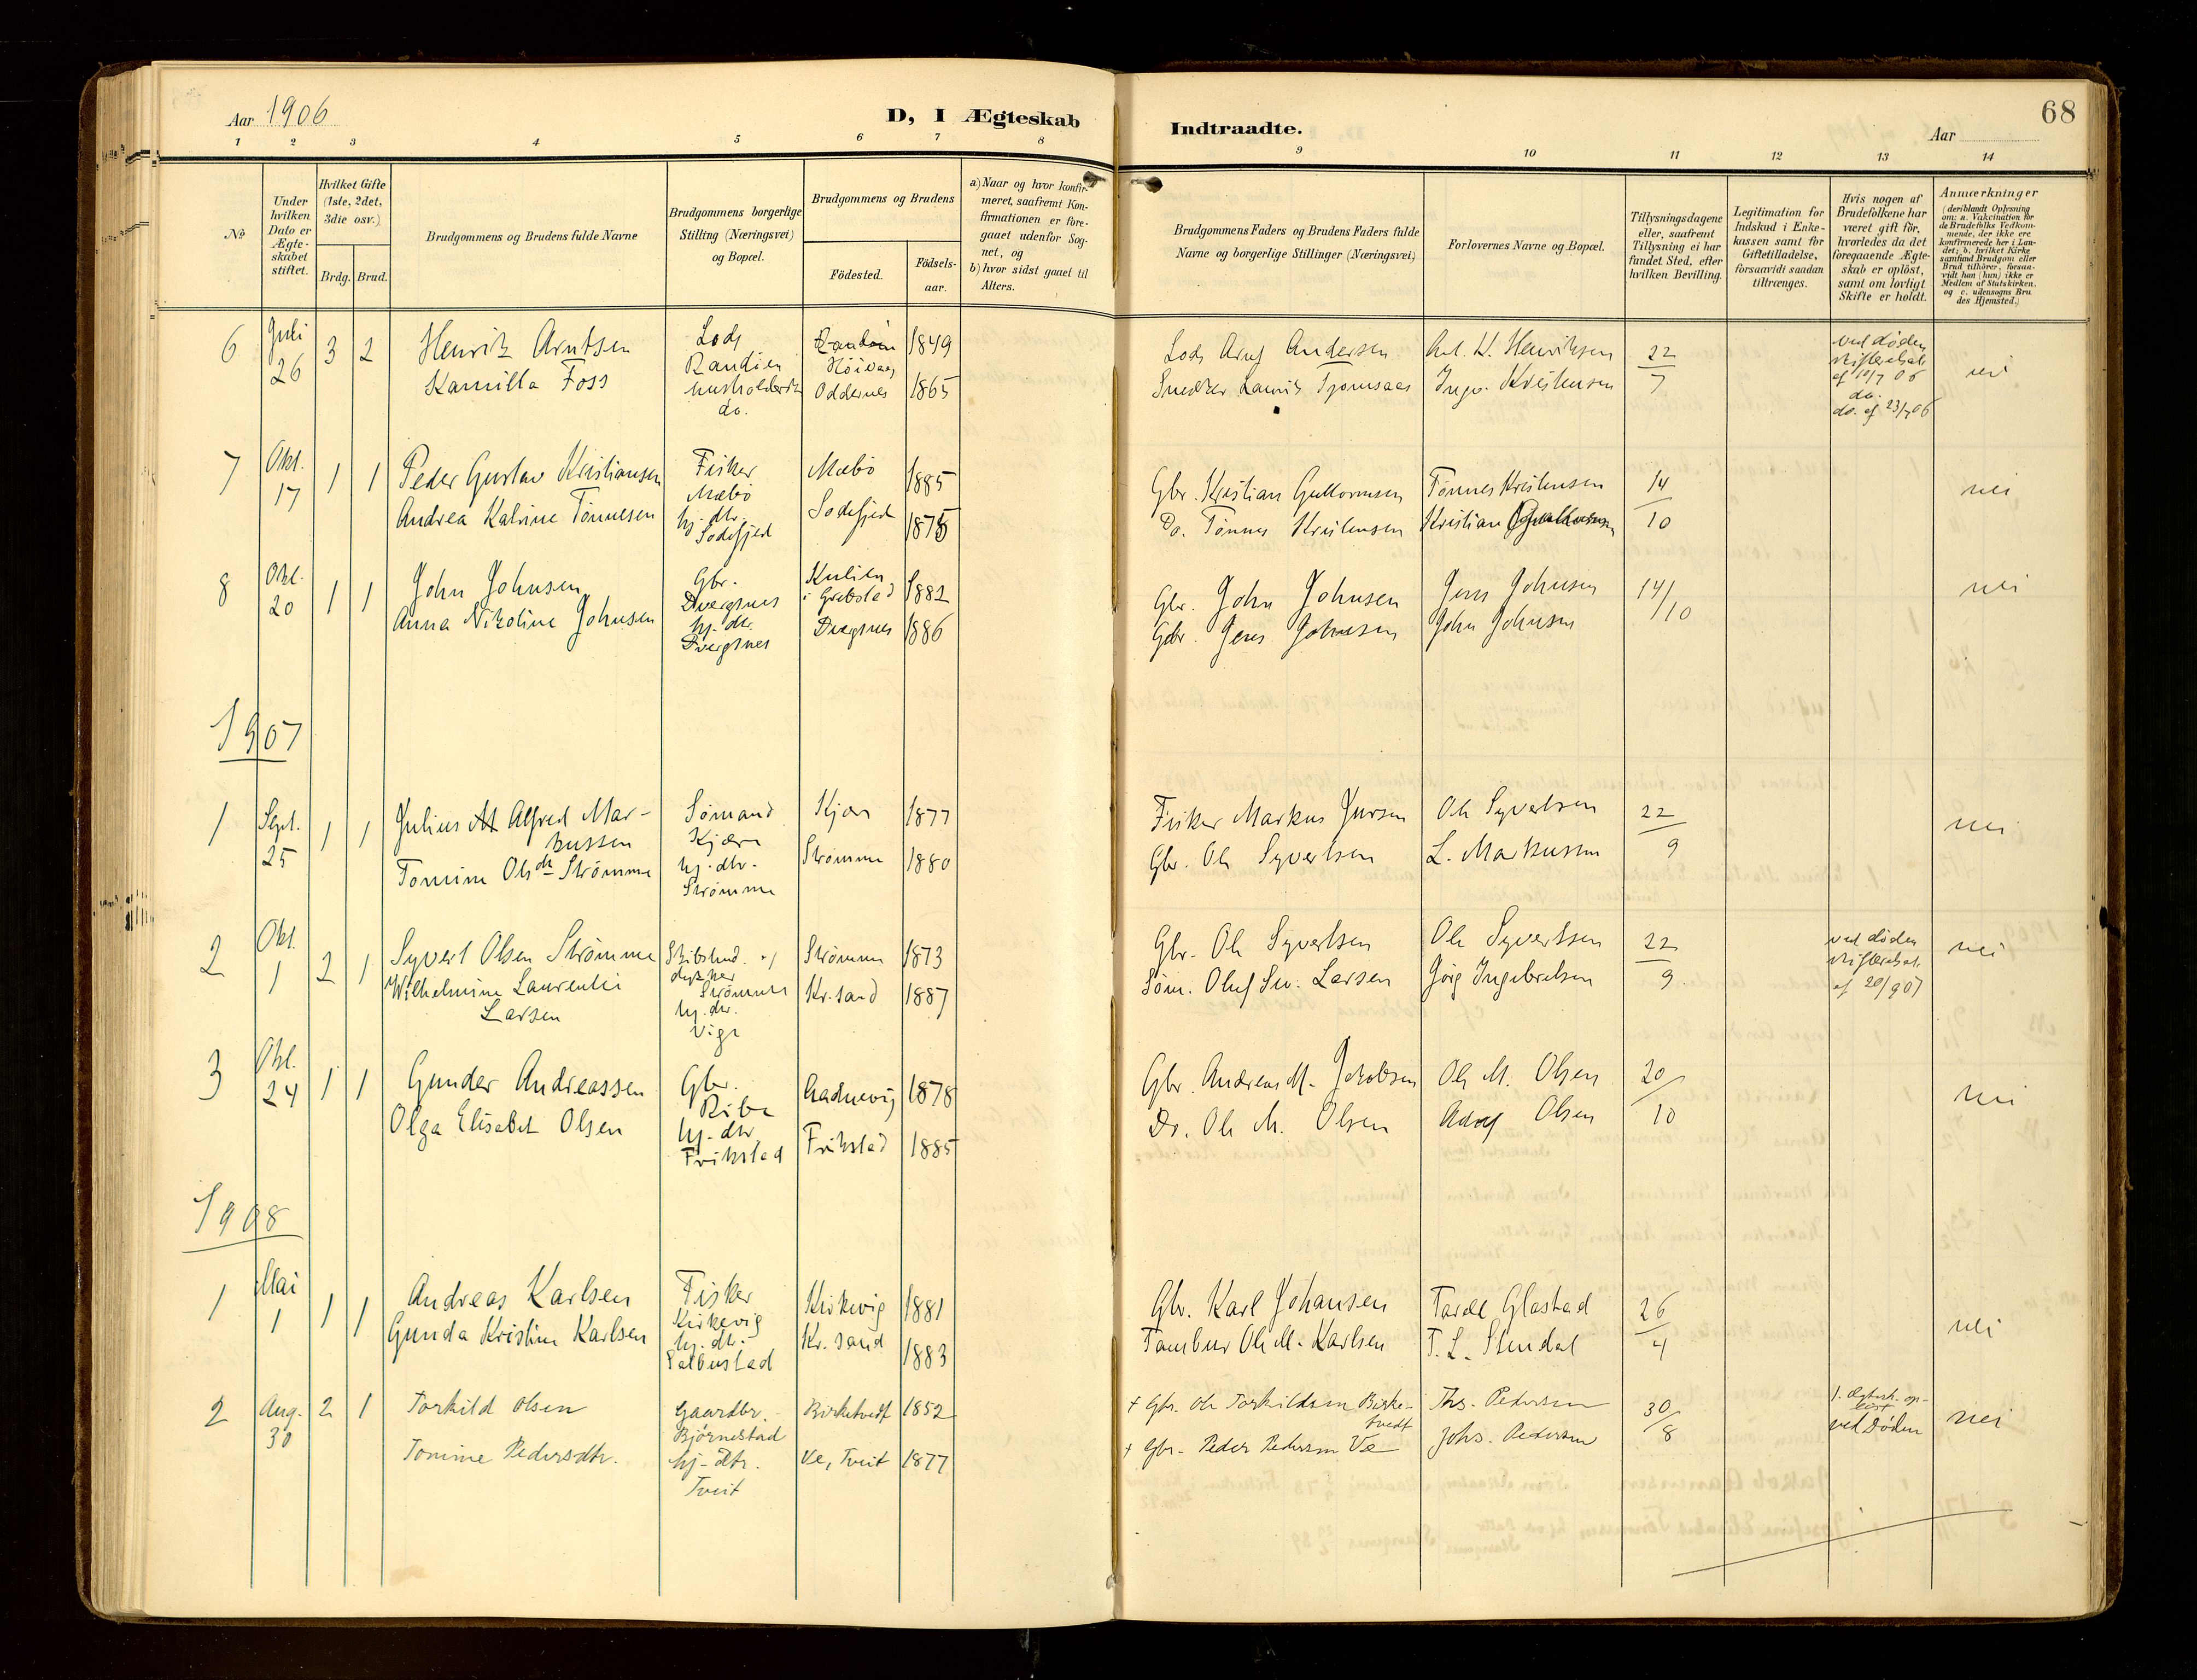 68
Aar 1906
D, I Ægteskab Indtraadte.
Aar
1 2 3 4 5 6 7 8 9 10 11 12 13 14
№
Under hvilken Dato er Ægteskabet stiftet.
Hvilket Gifte (1ste, 2det, 3die osv.)
Brdg. Brud.
Brudgommens og Brudens fulde Navne
Brudgommens borgerlige Stilling (Næringsvei) og Bopæl.
Brudgommens og Brudens
Födested.
Födsels-aar.
a) Naar og hvor konfirmeret, saafremt Konfirmationen er foregaaet udenfor Sognet, og
b) hvor sidst gaaet til Alters.
Brudgommens Faders og Brudens Faders fulde Navne og borgerlige Stillinger (Næringsvei)
Forlovernes Navne og Bopæl.
Tillysningsdagene eller, saafremt Tillysning ei har fundet Sted, efter hvilken Bevilling.
Legitimation for Indskud i Enkekassen samt for Giftetilladelse, forsaavidt saadan tiltrænges.
Hvis nogen af Brudefolkene har været gift för, hvorledes da det foregaaende Ægteskab er oplöst, samt om lovligt Skifte er holdt.
Anmærkninger
(deriblandt Oplysning om: a. Vakcination for de Brudefolks Vedkommende, der ikke ere konfirmerede her i Landet; b. hvilket Kirkesamfund Brudgom eller Brud tilhörer, forsaavidt han (hun) ikke er Medlem af Statskirken, og c. udensogns Brudes Hjemsted.)
6 Juli 26 3 2 Henrik Arntsen Lods Randöen Höivaag 1849 Lods Andersen 22/7 ved døden nei
Kamilla Foss do. Oddernes 1865 Snedker do. af 23/7 06
7 Okt. 17 1 1 Peder Gustav Kristiansen Fisker Mæbö Mæbö 1885 Gbr. Kristian Guttormsen Tönnes Kristensen 14/10 nei
Andrea Katrine Tönnesen hj. dtr. Sodefjed Sodefjed Do. Tönnes Kristensen Kristian
8 Okt. 20 1 1 John Johnsen Gbr. Dvergsnes 1882 Gbr. John Johnsen Jens Johnsen 14/10 nei
Anna Nikoline Johnsen hj. dtr. Dvergsnes Dvergsnes 1886 Gbr. Jens Johnsen John Johnsen
1907
1 Sept. 25 1 1 Julius Alfred Markussen Sömand Kjær 1877 Fisker Markus Ole Syvertsen 22/9 nei
Tomine Olsdtr Strömme hj. dtr. Strömme Strömme 1880 Gbr. Ole Syvertsen L. Markussen
2 Okt. 1 2 1 Syvert Olsen Strömme Strömme 1873 Gbr. Ole Syvertsen Ole Syvertsen 22/9 ved døden af 20/9 07 nei
Wilhelmine Laurentie Larsen hj. dtr. Vige Kr.sand 1887 Söm. Oluf Larsen Ingebretsen
3 Okt. 24 1 1 Gunder Andreassen Gbr. 1878 Gbr. Andreas M. Jakobsen Ole M. Olsen 20/10 nei
Olga Elisabet Olsen hj. dtr. Frikstad Frikstad 1885 Do. Ole M. Olsen Olsen
1908
1 Mai 1 1 1 Andreas Karlsen Fisker Kirkevig Kirkevig 1881 Gbr. Karl Johansen Glastad 26/4 nei
Gunda Kristine Karlsen hj. dtr. Kr.sand 1883 Tambur Ole M. Karlsen T. L. Stendal
2 Aug. 30 2 1 Torkild Olsen Gaardbr. Bjørnestad Birketvedt 1852 + Gbr. Ole Torkildsen Birketvedt Ths. Pedersen 30/8 1. Ægtesk. opløst ved Døden nei
Tomine Pedersdtr. hj. dtr. Tveit Ve, Tveit 1877 + Gbr. Peder Pedersen Ve Johs. Pedersen